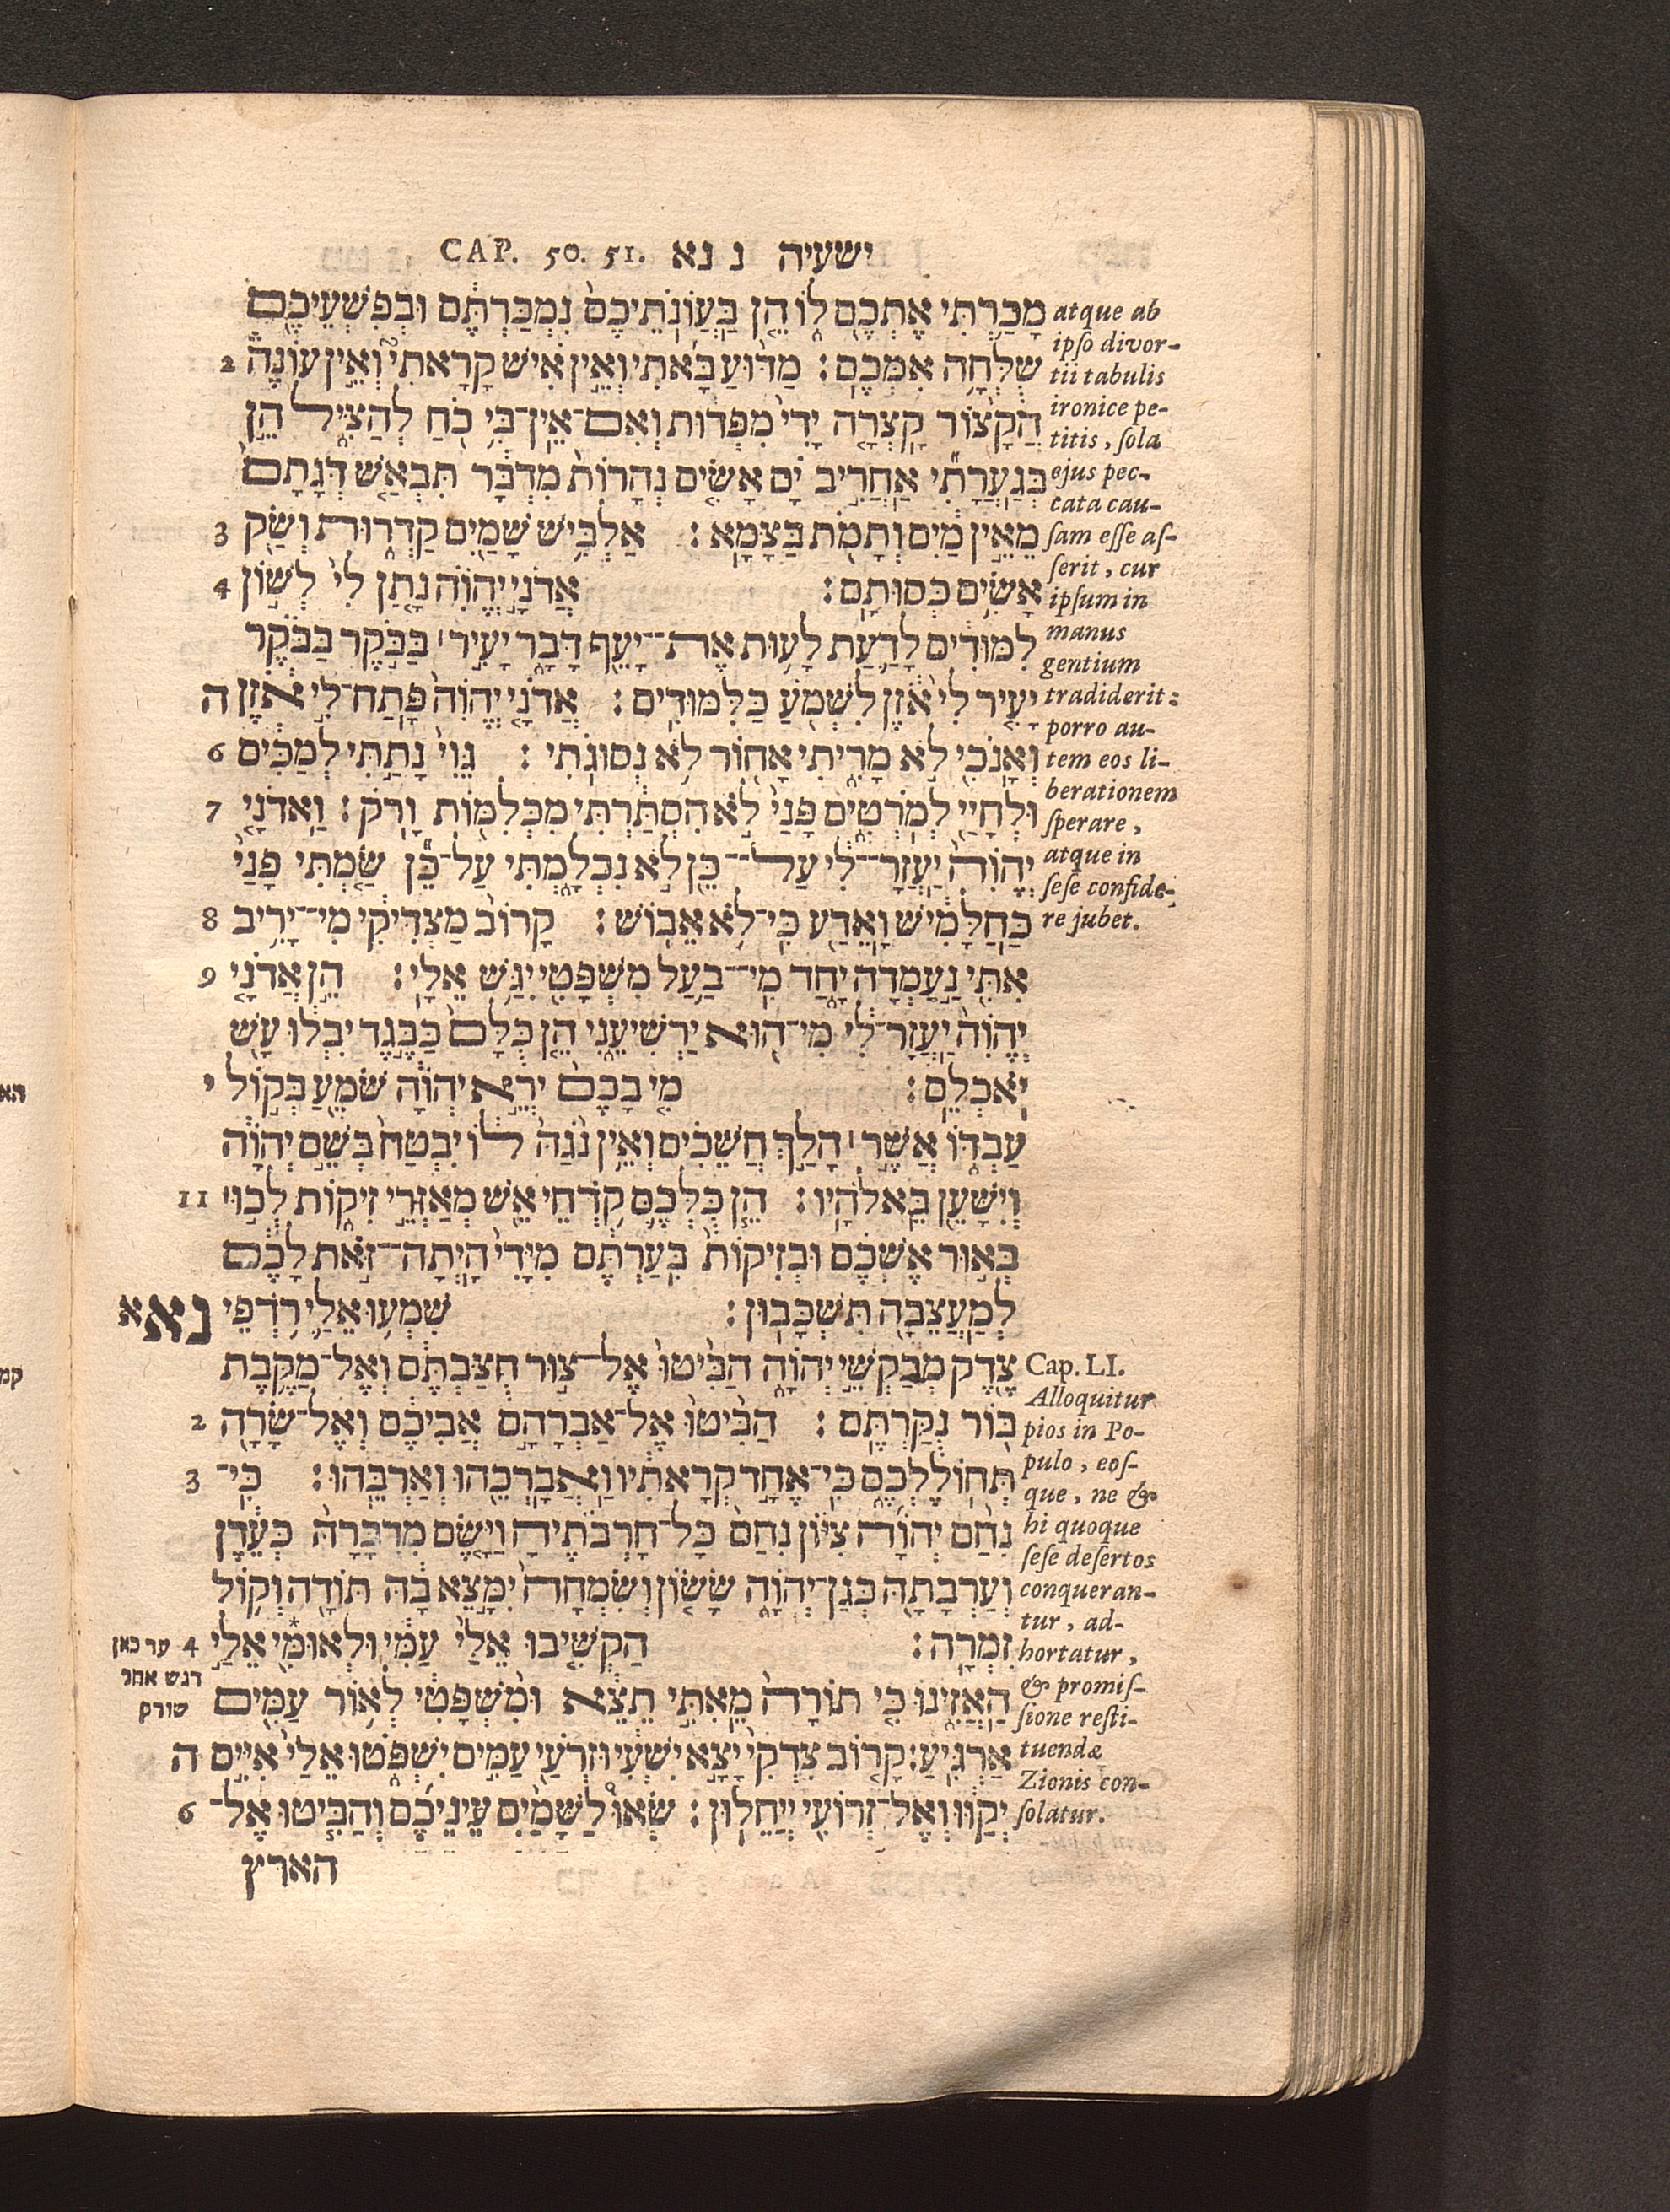 CAP. 50. 51. ישעיה נ נא
מָכַרְתִּי אֶתְכֶם לוֹ הֵן בַּעֲוֹנֹתֵיכֶם נִמְכַּרְתֶּם וּבְפִשְׁעֵיכֶם
שֻׁלְּחָה אִמְּכֶם: מַדּוּעַ בָּאתִי וְאֵין אִישׁ קָרָאתִי וְאֵין עוֹנֶה 2
הֲקָצוֹר קָצְרָה יָדִי מִפְּדוּת וְאִם־אֵין־בִּי כֹחַ לְהַצִּיל הֵן
בְּגַעֲרָתִי אַחֲרִיב יָם אָשִׂים נְהָרוֹת מִדְבָּר תִּבְאַשׁ דְּגָתָם
מֵאֵין מַיִם וְתָמֹת בַּצָּמָא: אַלְבִּישׁ שָׁמַיִם קַדְרוּת וְשַׂק 3
אָשִׂים כְּסוּתָם: אֲדֹנָי יֱהֹוִה נָתַן לִי לְשׁוֹן 4
לִמּוּדִים לָדַעַת לָעוּת אֶת־יָעֵף דָּבָר יָעִיר׀ בַּבֹּקֶר בַּבֹּקֶר
יָעִיר לִי אֹזֶן לִשְׁמֹעַ כַּלִּמּוּדִים: אֲדֹנָי יֱהֹוִה פָּתַח־לִי אֹזֶן ה
וְאָנֹכִי לֹא מָרִיתִי אָחוֹר לֹא נְסוּגֹתִי: גֵּוִי נָתַתִּי לְמַכִּים 6
וּלְחָיַי לְמֹרְטִים פָּנַי לֹא הִסְתַּרְתִּי מִכְּלִמּוֹת וָרֹק: וַאדֹנָי 7
יֱהֹוִה יַעֲזָר־לִי עַל־כֵּן לֹא נִכְלָמְתִּי עַל־כֵּן שַׂמְתִּי פָנַי
כַּחַלָּמִישׁ וָאֵדַע כִּי־לֹא אֵבוֹשׁ: קָרוֹב מַצְדִּיקִי מִי־יָרִיב 8
אִתִּי נַעַמְדָה יָּחַד מִי־בַעַל מִשְׁפָּטִי יִגַּשׁ אֵלָי: הֵן אֲדֹנָי 9
יֱהֹוִה יַעֲזָר־לִי מִי־הוּא יַרְשִׁיעֵנִי הֵן כֻּלָּם כַּבֶּגֶד יִבְלוּ עָשׁ
יֹאכְלֵם: מִי בָכֶם יְרֵא יְהֹוָה שֹׁמֵעַ בְּקוֹל י
עַבְדּוֹ אֲשֶׁר׀ הָלַךְ חֲשֵׁכִים וְאֵין נֹגַהּ לוֹ יִבְטַח בְּשֵׁם יְהֹוָה
וְיִשָּׁעֵן בֵּאלֹהָיו: הֵן כֻּלְּכֶם קֹדְחֵי אֵשׁ מְאַזְּרֵי זִיקוֹת לְכוּ׀ 11
בְּאוּר אֶשְׁכֶם וּבְזִיקוֹת בִּעַרְתֶּם מִיָּדִי הָיְתָה־זֹּאת לָכֶם
לְמַעֲצֵבָה תִּשְׁכָּבוּן: שִׁמְעוּ אֵלַי רֹדְפֵי נא א
צֶדֶק מְבַקְשֵׁי יְהֹוָה הַבִּיטוּ אֶל־צוּר חֻצַּבְתֶּם וְאֶל־מַקֶּבֶת
בּוֹר נֻקַּרְתֶּם: הַבִּיטוּ אֶל־אַבְרָהָם אֲבִיכֶם וְאֶל־שָׂרָה 2
תְּחוֹלֶלְכֶם כִּי־אֶחָד קְרָאתִיו וַאֲבָרְכֵהוּ וְאַרְבֵּהוּ: כִּי־ 3
נִחַם יְהֹוָה צִיּוֹן נִחַם כָּל־חָרְבֹתֶיהָ וַיָּשֶׂם מִדְבָּרָהּ כְּעֵדֶן
וְעַרְבָתָהּ כְּגַן־יְהֹוָה שָׂשׂוֹן וְשִׂמְחָה יִמָּצֵא בָהּ תּוֹדָה וְקוֹל
זִמְרָה: הַקְשִׁיבוּ אֵלַי עַמִּי וּלְאוּמִּ֯י אֵלַי 4
הַאֲזִינוּ כִּי תוֹרָה מֵאִתִּי תֵצֵא וּמִשְׁפָּטִי לְאוֹר עַמִּים
אַרְגִּיעַ: קָרוֹב צִדְקִי יָצָא יִשְׁעִי וּזְרֹעַי עַמִּים יִשְׁפֹּטוּ אֵלַי אִיִּים ה
יְקַוּוּ וְאֶל־זְרוֹעִי יְיַחֵלוּן: שְׂאוּ לַשָּׁמַיִם עֵינֵיכֶם וְהַבִּיטוּ אֶל־ 6
הארץ
atque ab
ipso divor-
tii tabulis
ironice pe-
titis, sola
ejus pec-
cata cau-
sam esse as-
serit, cur
ipsum in
manus
gentium
tradiderit:
porro au-
tem eos li-
berationem
sperare,
atque in
sese confide-
re jubet.
Cap. LI.
Alloquitur
pios in Po-
pulo, eos-
que, ne &
hi quoque
sese desertos
conqueran-
tur, ad-
hortatur,
& promis-
sione resti-
tuendæ
Zionis con-
solatur.
ער כאן
דגש אחר
שורק